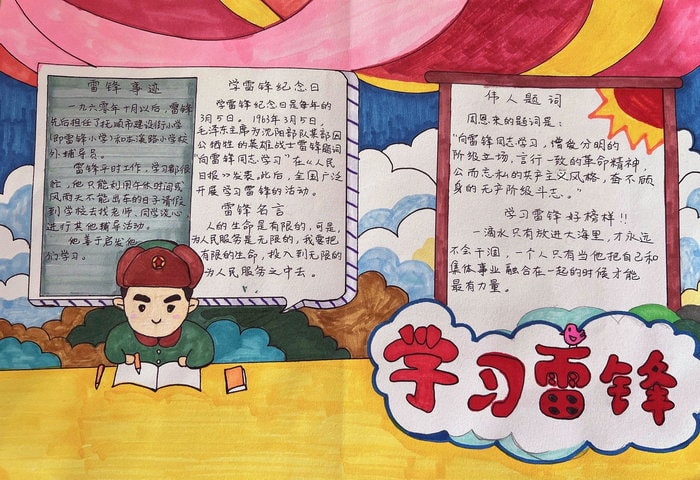 雷锋事迹
一九六零年十月以后,雷锋
先后担任了抚顺市建设街小学
(即雷锋小学)和本溪路小学校
外辅导员。
雷锋平时工作,学习都很
忙,他只能利用午休时间或
风雨天不能出车的日子请假
到学校去找老师,同学谈心,
进行其他辅导活动。
他善于启发他
们学习。
学雷锋纪念日
学雷锋纪念日是每年的
3月5日。1963年3月5日,
毛泽东主席为沈阳部队某部因
公牺牲的英雄战士雷锋题词
"向雷锋同志学习"在《人民
日报》发表。此后,全国广泛
开展学习雷锋的活动。
雷锋名言
人的生命是有限的,可是,
为人民服务是无限的,我要把
有限的生命,投入到无限的
为人民服务之中去。
伟人题词
周恩来的题词是:
"向雷锋同志学习,憎爱分明的
阶级立场,言行一致的革命精神,
公而忘私的共产主义风格,奋不顾
身的无产阶级斗志。"
学习雷锋好榜样!!
一滴水只有放进大海里,才永远
不会干涸,一个人只有当他把自己和
集体事业融合在一起的时候才能
最有力量。
学习雷锋